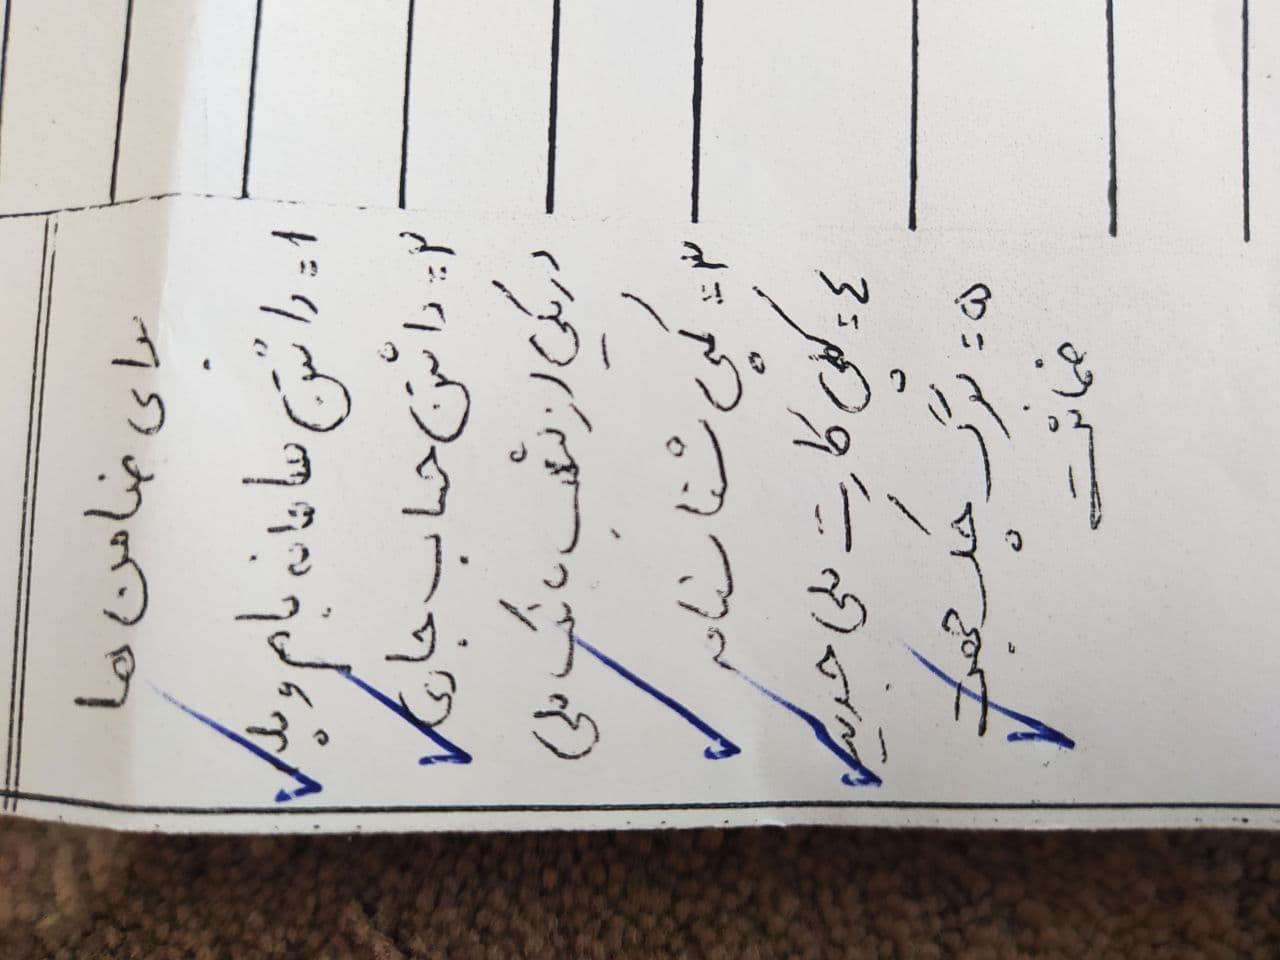 برای ضامن ها
۱= داشتن سامانه بام و بله
۲= داشتن حساب جاری
در یکی از شعب بانک ملی
۳= کپی شناسنامه
٤= کپی کارت ملی جدید
۵= برگ چک جهت
ضمانت